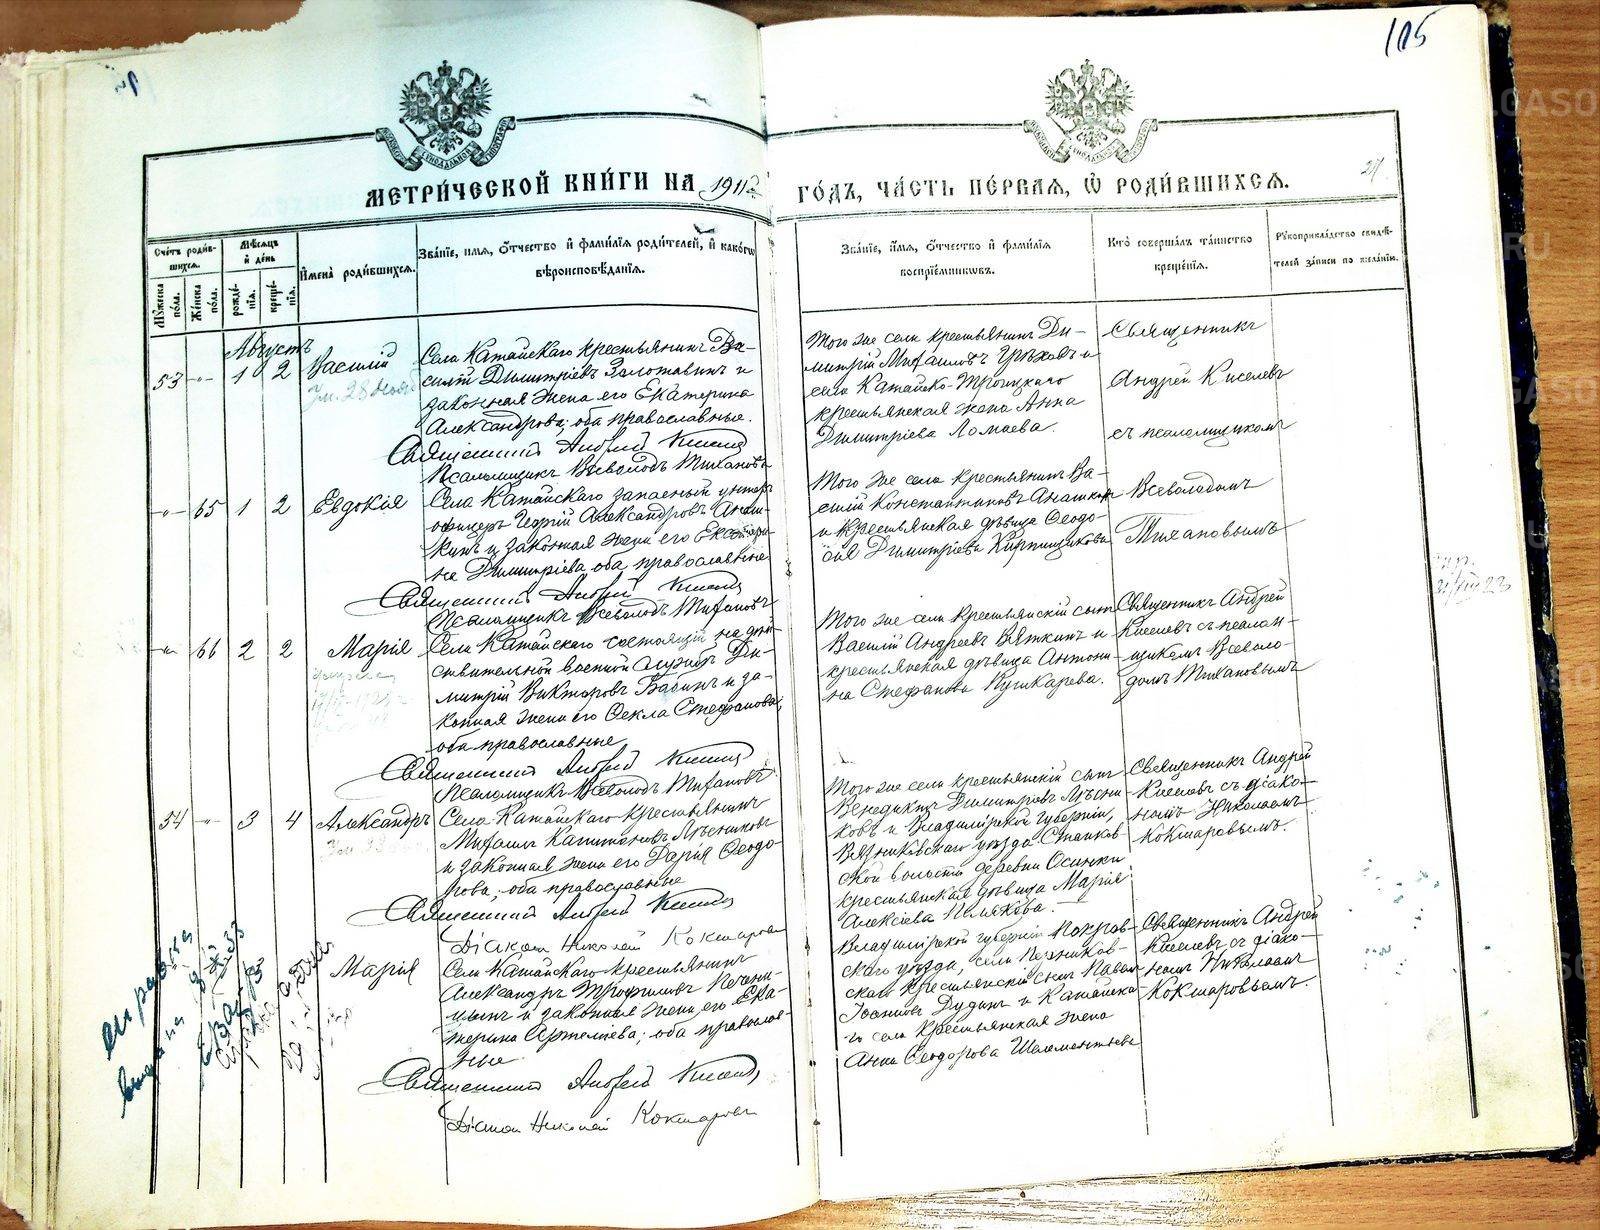 105
МЕТРИ́ЧЕСКОЙ КНИ́ГИ НА 1912
ГО́ДЪ, ЧА́СТЬ ПЕ́РВАЯ, Ѡ҆ РОДИ́ВШИХСЯ.
Сче́тъ роди́в-
шихся.
Му́жеска по́ла.
Же́нска по́ла.
Мѣ́сяцъ
и҆ де́нь
рожде́-
нїя.
креще́-
нїя.
И҆мена̀ роди́вшихся.
Зва́нїе, и҆мя, ѻ҆́тчество и҆ фами́лїя роди́телей, и҆ како́гѡ
вѣроисповѣ́данїя.
Зва́нїе, и҆́мя, ѻ҆́тчество и҆ фами́лїя
воспрїе́мниковъ.
Кто̀ соверша́лъ та́инство
креще́нїя.
Рꙋкоприкла́дство свидѣ́-
телей за́писи по жела́нїю.
Августъ
53 -"- 1 2
Василій
Села Катайскаго крестьянинъ Ва-
силій Димитріевъ Золотавинъ и
законная жена его Екатерина
Александрова; оба православные.
Священникъ Андрей Киселевъ
Псаломщикъ Всеволодъ Тихановъ
Того же села крестьянинъ Ди-
митрій Михаиловъ и
села Катайско-Троицкаго
крестьянская жена Анна
Димитріева Ломаева.
Священникъ
Андрей Киселевъ
съ псаломщикомъ
-"- 65 1 2
Евдокія
Села Катайскаго запасный унтеръ
офицеръ Георгій Александровъ Анаш-
кинъ и законная жена его Екатери-
на Димитріева оба православные
Священникъ Андрей Киселевъ
Псаломщикъ Всеволодъ Тихановъ
Того же села крестьянинъ Ва-
силій Константиновъ Анашкинъ
и крестьянская дѣвица Ѳеодо-
сія Димитріева Кирпищикова
Всеволодомъ
Тихановымъ
-"- 66 2 2
Марія
Села Катайскаго состоящій на дѣй-
ствительной военной службѣ Ди-
митрій Викторовъ Бабинъ и за-
конная жена его Ѳекла Стефанова,
оба православные
Священникъ Андрей Киселевъ
Псаломщикъ Всеволодъ Тихановъ
Того же села крестьянскій сынъ
Василій Андреевъ Вяткинъ и
крестьянская дѣвица Антони-
на Стефанова Кушкарева.
Священникъ Андрей
Киселевъ съ псалом-
щикомъ Всеволо-
домъ Тихановымъ
54 -"- 3 4
Александръ
Села Катайскаго крестьянинъ
Михаилъ Капитоновъ Лѣсниковъ
и законная жена его Дарія Ѳеодо-
рова; оба православные
Священникъ Андрей Киселевъ
Діаконъ Николай Кокшаровъ
Того же села крестьянскій сынъ
Венедиктъ Димитріевъ Лѣсни-
ковъ и Владимірской губерніи,
Вязниковскаго уѣзда Станков-
ской волости деревни Осинки
крестьянская дѣвица Марія
Алексіева Полякова.
Священникъ Андрей
Киселевъ съ діако-
номъ Николаемъ
Кокшаровымъ.
Марія
Села Катайскаго крестьянинъ
Александръ Трофимовъ Печени-
цынъ и законная жена его Ека-
терина Артемиева; оба православ-
ные
Священникъ Андрей Киселевъ
Діаконъ Николай Кокшаровъ
Владимірской губерніи Покров-
скаго уѣзда, села
крестьянскій сынъ Павелъ
Іоанновъ Дудинъ и Катайска-
го села крестьянская жена
Анна Ѳеодорова Шаламентьева
Священникъ Андрей
Киселевъ съ діако-
номъ Николаемъ
Кокшаровымъ.